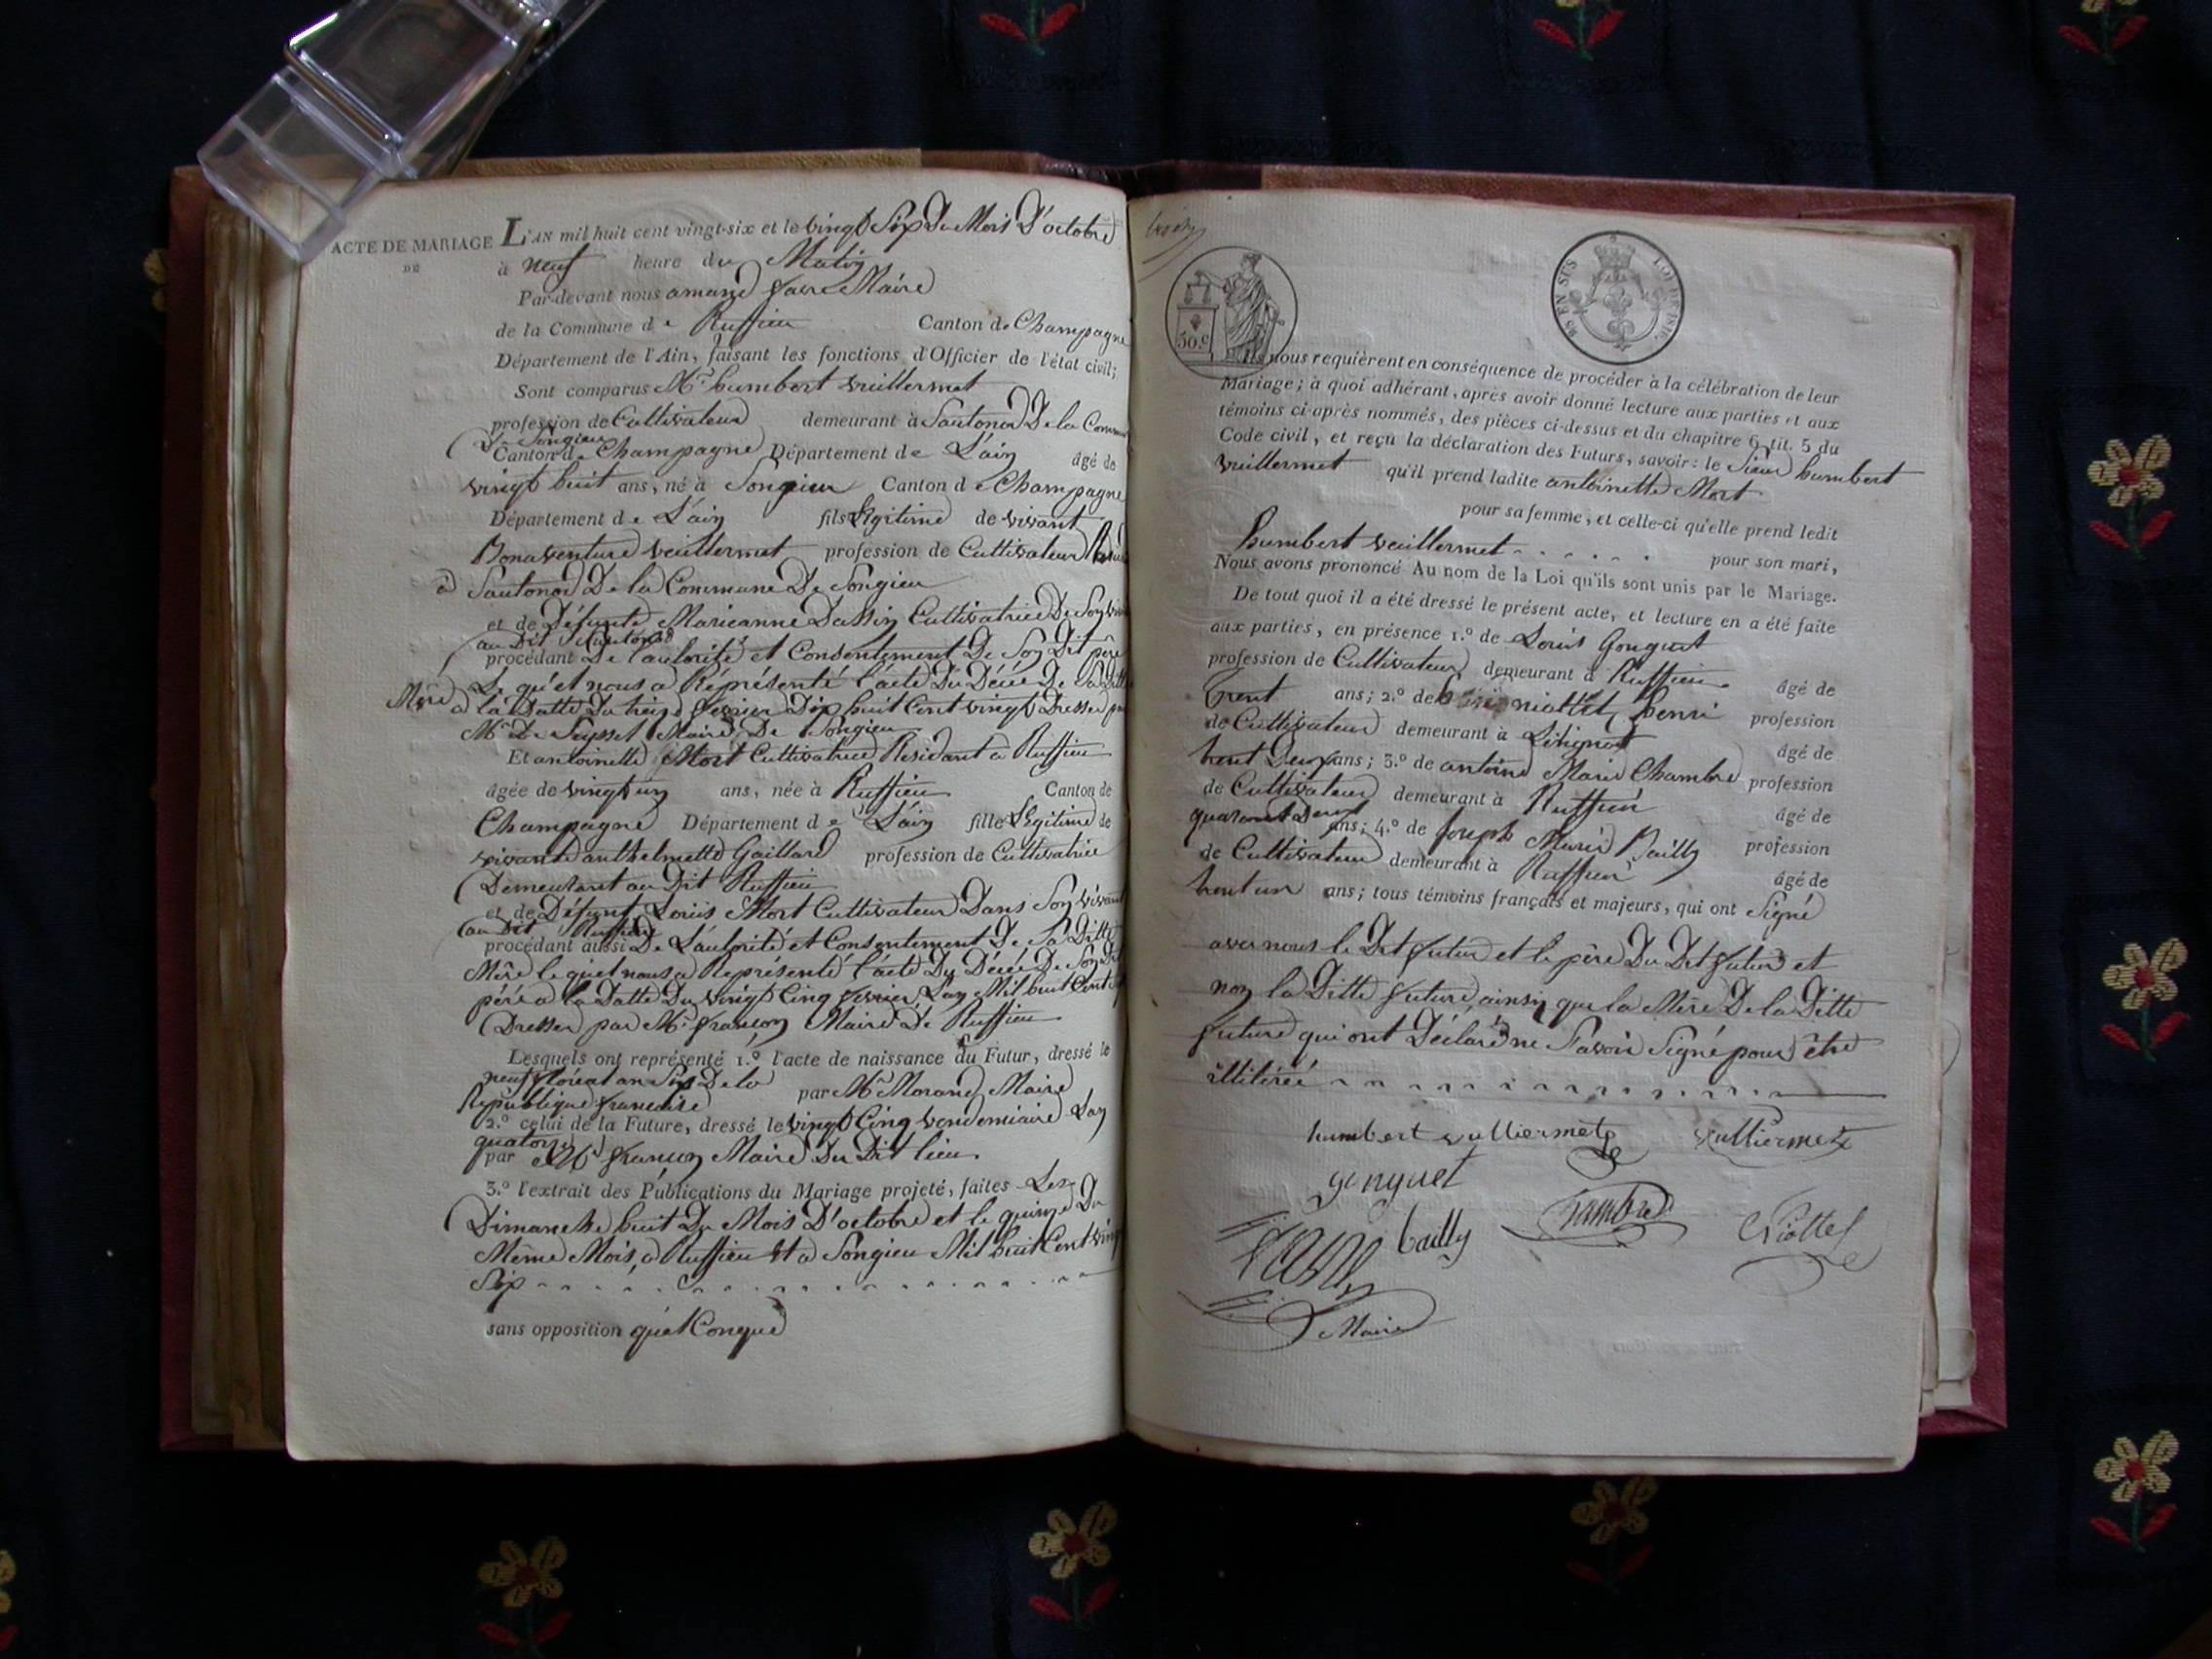 ACTE DE MARIAGE
DE
L'AN mil huit cent vingt-six et le vingt Six Du Mois D'octobre
à neuf heure du Matin
Par-devant nous amand favre Maire
de la Commune de Ruffieu Canton de Champagne
Département de l'Ain, faisant les fonctions d'Officier de l'état civil;
Sont comparus Mr. humbert vuillermet
profession de Cultivateur demeurant à Sautonod De la Commune
De Songieu
Canton de Champagne Département de L'ain âgé de
vingt huit ans, né à Songieu Canton de Champagne
Département de L'ain fils Légitime de vivant
Bonaventure vuillermet profession de Cultivateur
a Sautonod De la Commune De Songieu
et de Défunte Marieanne Dassin Cultivatrice De Son vivant
au Dit Sautonod
procédant De l'autorité et Consentement De Son Dit père
Le quel nous a Représenté l'acte Du Décé De Sa Ditte
Mère a la Datte Du treize fevrier Dix huit Cent vingt Dresser par
Mr. De Seyssel Maire De Songieu
Et antoinette Mort Cultivatrice Résidant a Ruffieu
âgée de vingt un ans, née à Ruffieu Canton de
Champagne Département de L'ain fille Légitime de
vivante anthelmette Gaillard profession de Cultivatrice
Demeurant au Dit Ruffieu
et de Défunt Louis Mort Cultivateur Dans Son vivant
au Dit Ruffieu
procédant aussi De L'autorité et Consentement De Sa Ditte
Mère le quel nous a Représenté l'acte Du Décé De Son Dit
père a la Datte Du vingt Cinq fevrier L'an Mil huit Cent
Dresser par Mr. françon Maire De Ruffieu
Lesquels ont représenté 1.º l'acte de naissance du Futur, dressé le
neuf floréal an Six De la par Mr Morand Maire
République francaise
2.º celui de la Future, dressé le vingt Cinq vendemiaire Lan
quatorze
par Mr françon Maire Du Dit lieu
3.º l'extrait des Publications du Mariage projeté, faites Les
Dimanche huit Du Mois D'octobre et le quinze Du
Même Mois, a Ruffieu et a Songieu Mil huit Cent vingt
Six
sans opposition quel Conque
50.c
EN SUS
LOI DE 1816
Ils nous requièrent en conséquence de procéder à la célébration de leur
Mariage; à quoi adhérant, après avoir donné lecture aux parties et aux
témoins ci-après nommés, des pièces ci-dessus et du chapitre 6, tit. 5 du
Code civil, et reçu la déclaration des Futurs, savoir: le Sieur humbert
vuillermet qu'il prend ladite antoinette Mort
pour sa femme, et celle-ci qu'elle prend ledit
humbert vuillermet pour son mari,
Nous avons prononcé Au nom de la Loi qu'ils sont unis par le Mariage.
De tout quoi il a été dressé le présent acte, et lecture en a été faite
aux parties, en présence 1.º de Louis Gonguet
profession de Cultivateur demeurant à Ruffieu âgé de
trent ans; 2.º de niottet henri profession
de Cultivateur demeurant à Lilignod âgé de
trent Deux ans; 3.º de antoine Marie Chambre profession
de Cultivateur demeurant à Ruffieu âgé de
quarant Deux ans; 4.º de Joseph Marie Bailly profession
de Cultivateur demeurant à Ruffieu âgé de
trent un ans; tous témoins français et majeurs, qui ont Signé
avec nous le Dit futur et le père Du Dit futur et
non la Ditte future, ainsin que la Mère De la Ditte
future qui ont Déclaré ne Savoir Signé pour être
illitéré
humbert vulliermet vulliermet
gonguet
bailly Chambre Niottet
favre
Maire